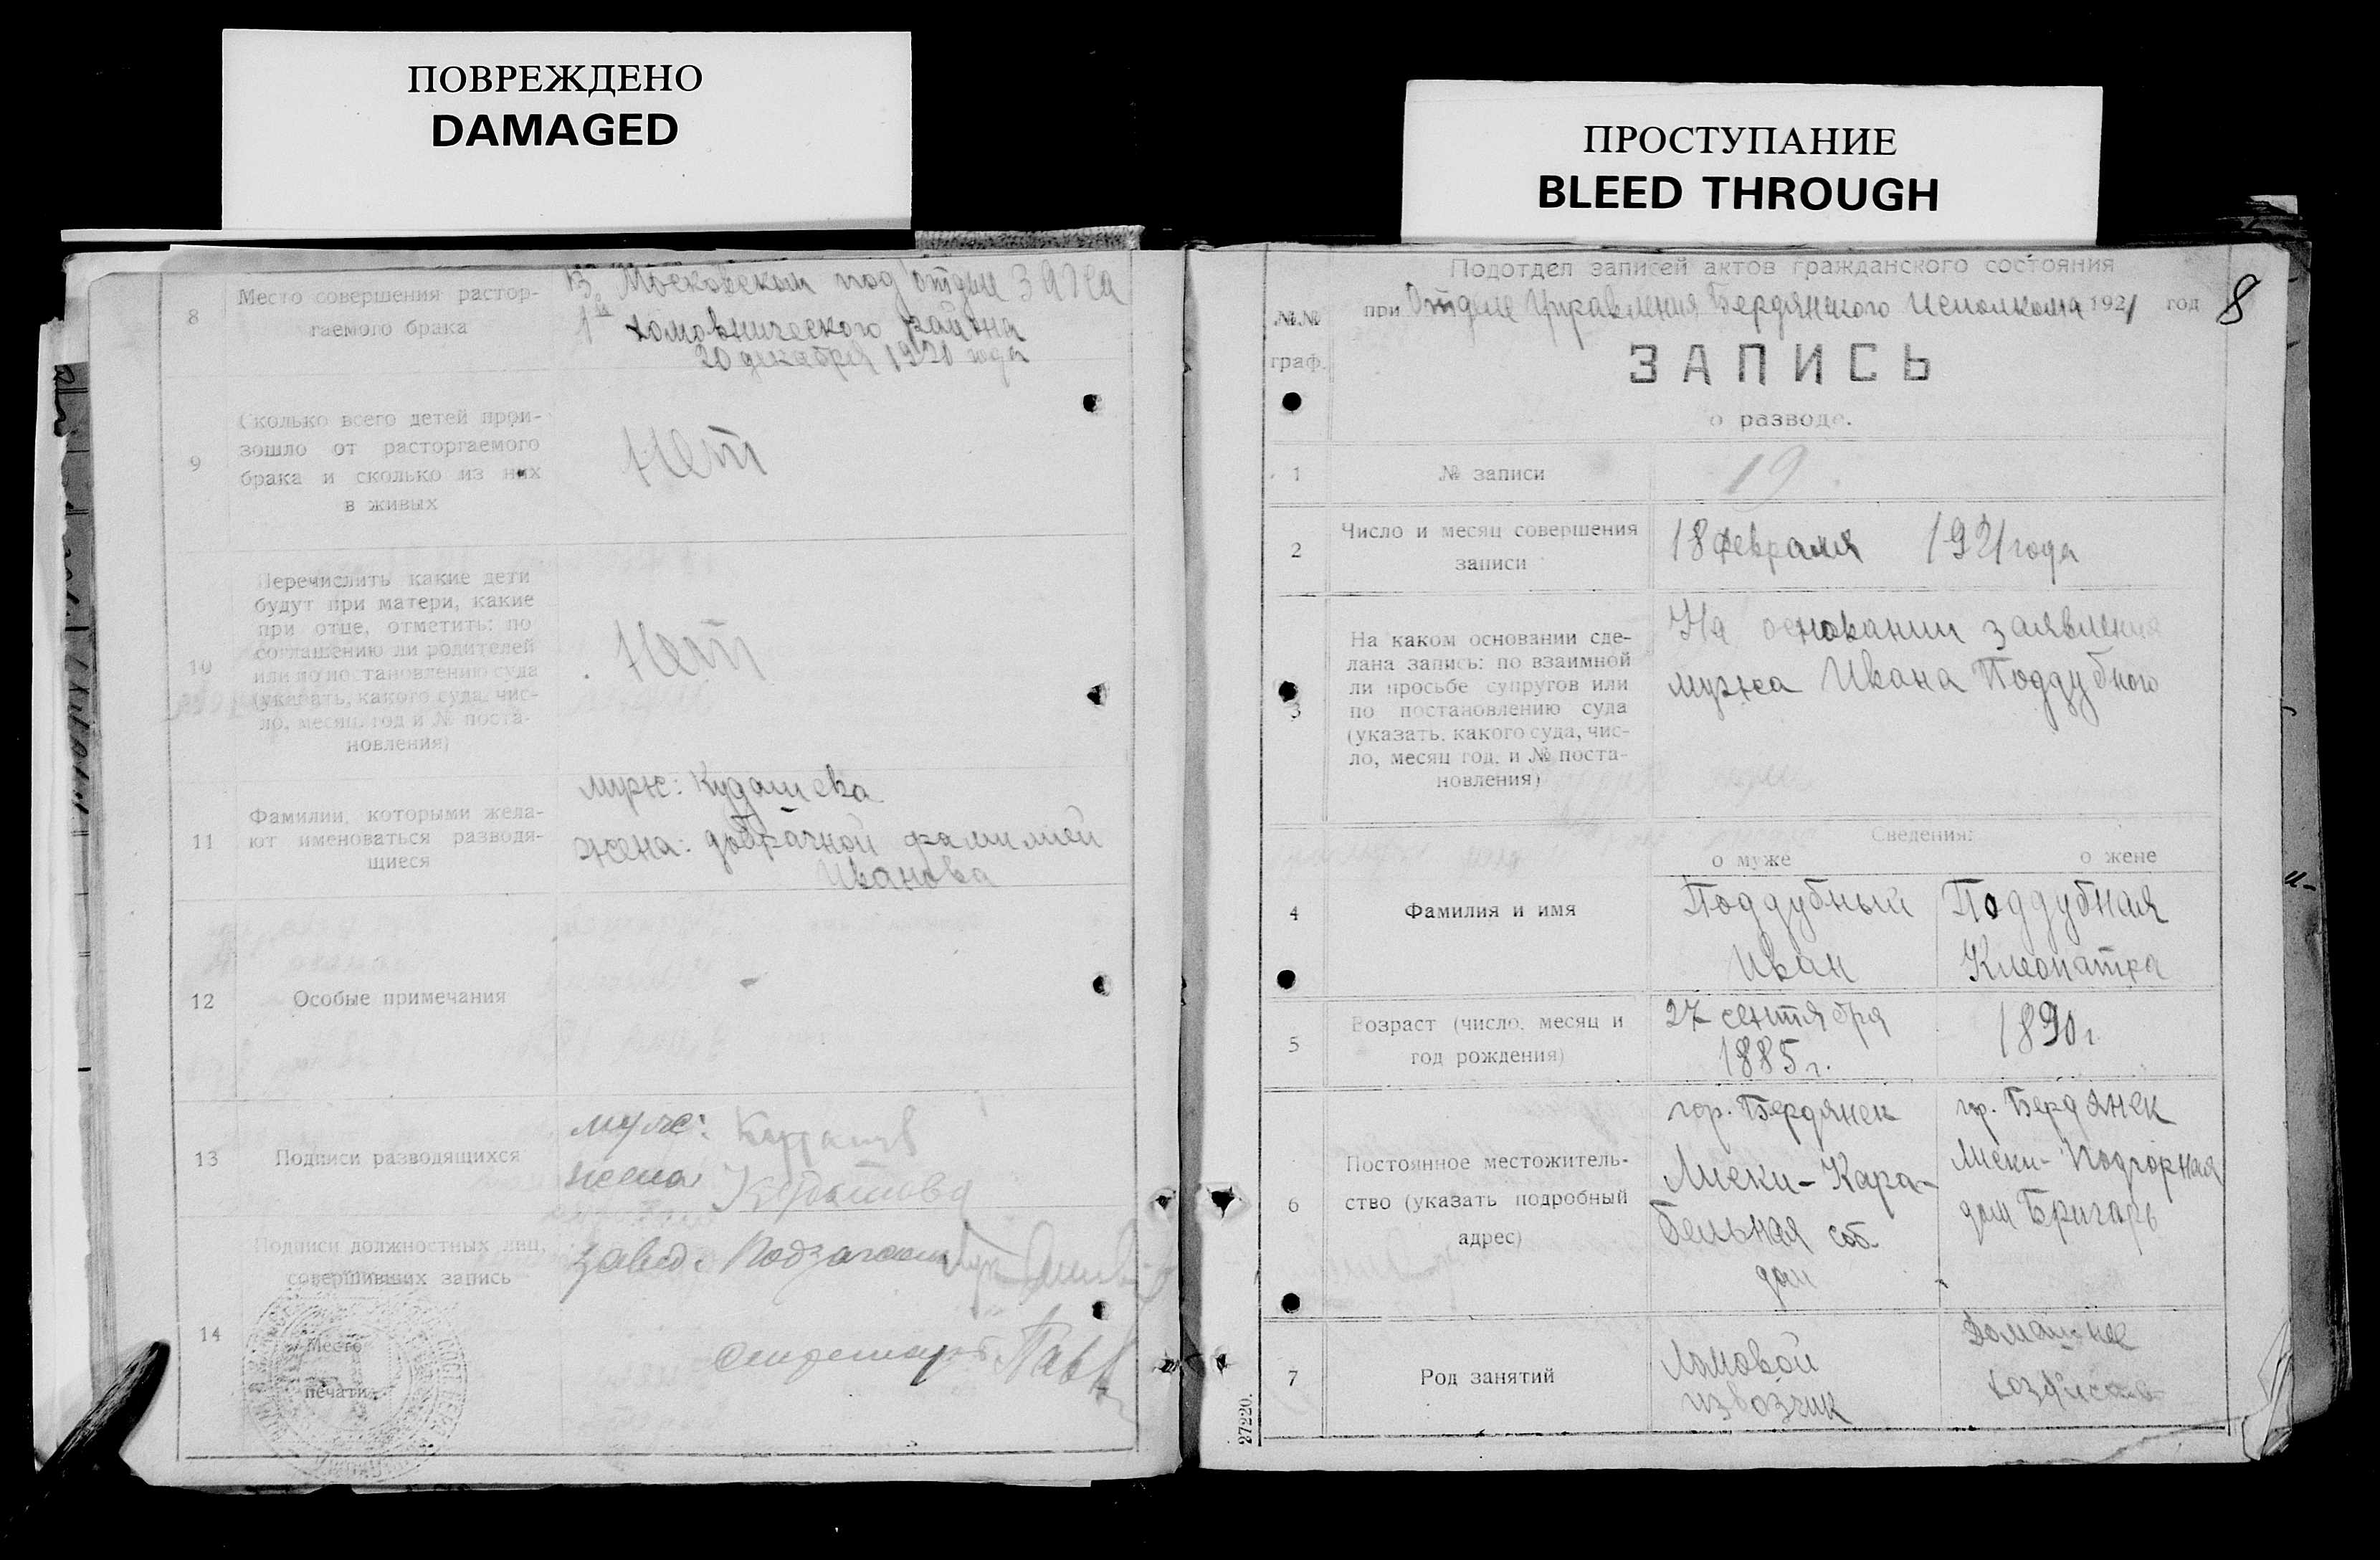 ПОВРЕЖДЕНО
DAMAGED
ПРОСТУПАНИЕ
BLEED THROUGH
8
Место совершения растор-
гаемого брака
В Московском под отделе ЗАГСа
1го Хамовнического района
20 декабря 1920 года
9
Сколько всего детей прои-
зошло от расторгаемого
брака и сколько из них
в живых
Нет
10
Перечислить какие дети
будут при матери, какие
при отце, отметить: по
соглашению ли родителей
или по постановлению суда
(указать, какого суда, чис-
ло, месяц, год и № поста-
новления)
Нет
11
Фамилии, которыми жела-
ют именоваться разводя-
щиеся
муж: Кудашева
жена: добрачной фамилией
Иванова
12
Особые примечания
-
13
Подписи разводящихся
муж:
жена
14
Подписи должностных лиц,
совершивших запись
Место
печати
завед. Подзагсом
Секретарь
№№
граф.
Подотдел записей актов гражданского состояния
при Отделе Управления Бердянского Исполкома 1921 год
8
ЗАПИСЬ
о разводе.
1
№ записи
19
2
Число и месяц совершения
записи
18 февраля 1921 года
3
На каком основании сде-
лана запись: по взаимной
ли просьбе супругов или
по постановлению суда
(указать, какого суда, чис-
ло, месяц год, и № поста-
новления)
На основании заявления
мужа Ивана Поддубного
Сведения:
о муже о жене
4
Фамилия и имя
Поддубный
Иван
Поддубная
Клеопатра
5
Возраст (число, месяц и
год рождения)
27 сентября
1885 г.
1890 г.
6
Постоянное местожитель-
ство (указать подробный
адрес)
гор. Бердянск
Лиски-Кара-
бельная соб.
дом
гор. Бердянск
Лиски-Подгорная
дом Бригарь
7
Род занятий
Ломовой
извозчик
Домашнее
хозяйство
27220.